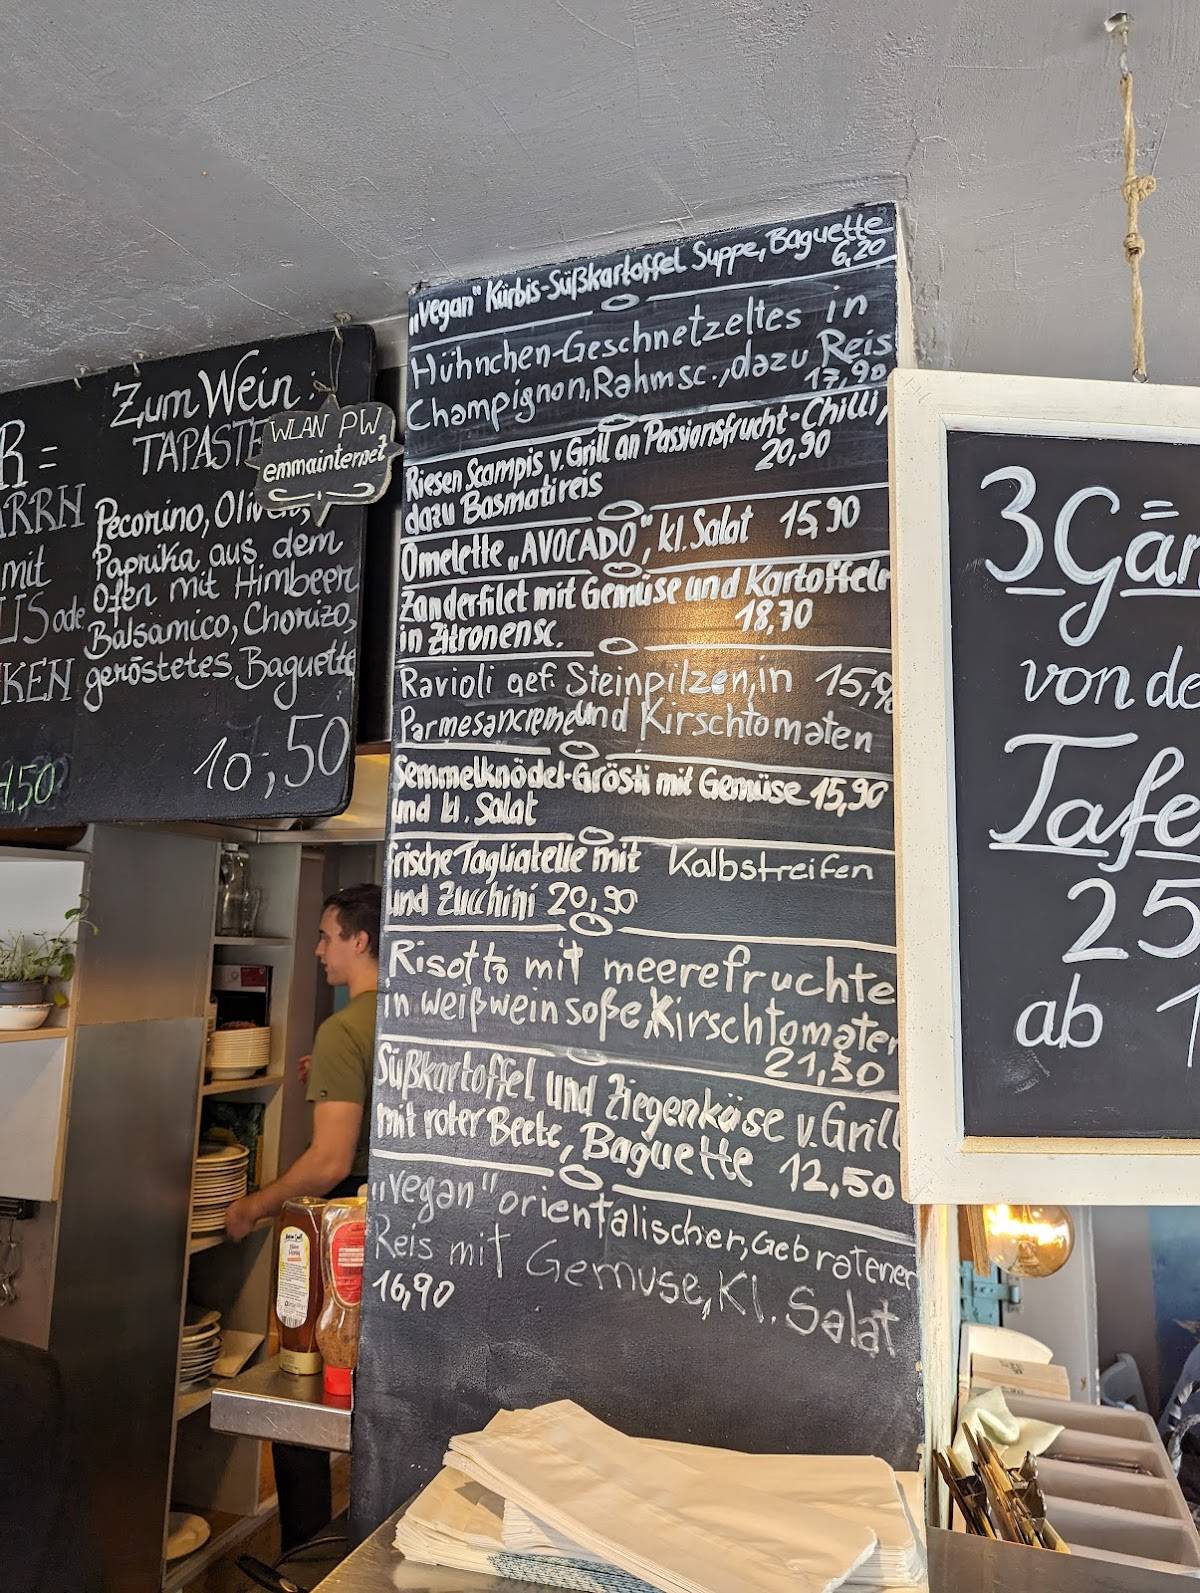 Zum Wein:
TAPASTE
Pecorino,
Paprika aus dem
Ofen mit Himbeer
Balsamico, Chorizo,
geröstetes Baguette
10,50
mit
ode
WLAN PW
emmainternet
„vegan" Kürbis-Süßkartoffel Suppe, Baguette
6,20
Hühnchen-Geschnetzeltes in
Champignon, Rahmsc., dazu Reis
17,90
Riesen Scampis v. Grill an Passionsfrucht-Chilli,
dazu Basmatireis 20,90
Omelette „AVOCADO", kl. Salat 15,90
Zanderfilet mit Gemüse und Kartoffeln
in Zitronensc. 18,70
Ravioli gef. Steinpilzen, in 15,90
Parmesancreme und Kirschtomaten
Semmelknödel-Grösti mit Gemüse 15,90
und kl. Salat
frische Tagliatelle mit Kalbstreifen
und Zucchini 20,90
Risotto mit meerefruchte
in weißwein soße, Kirschtomaten
21,50
Süßkartoffel und Ziegenkäse v. Grill
mit roter Beete, Baguette 12,50
„vegan" orientalischer, Gebratener
Reis mit Gemuse, Kl. Salat
16,90
3 Gän
von de
Tafe
25
ab 1